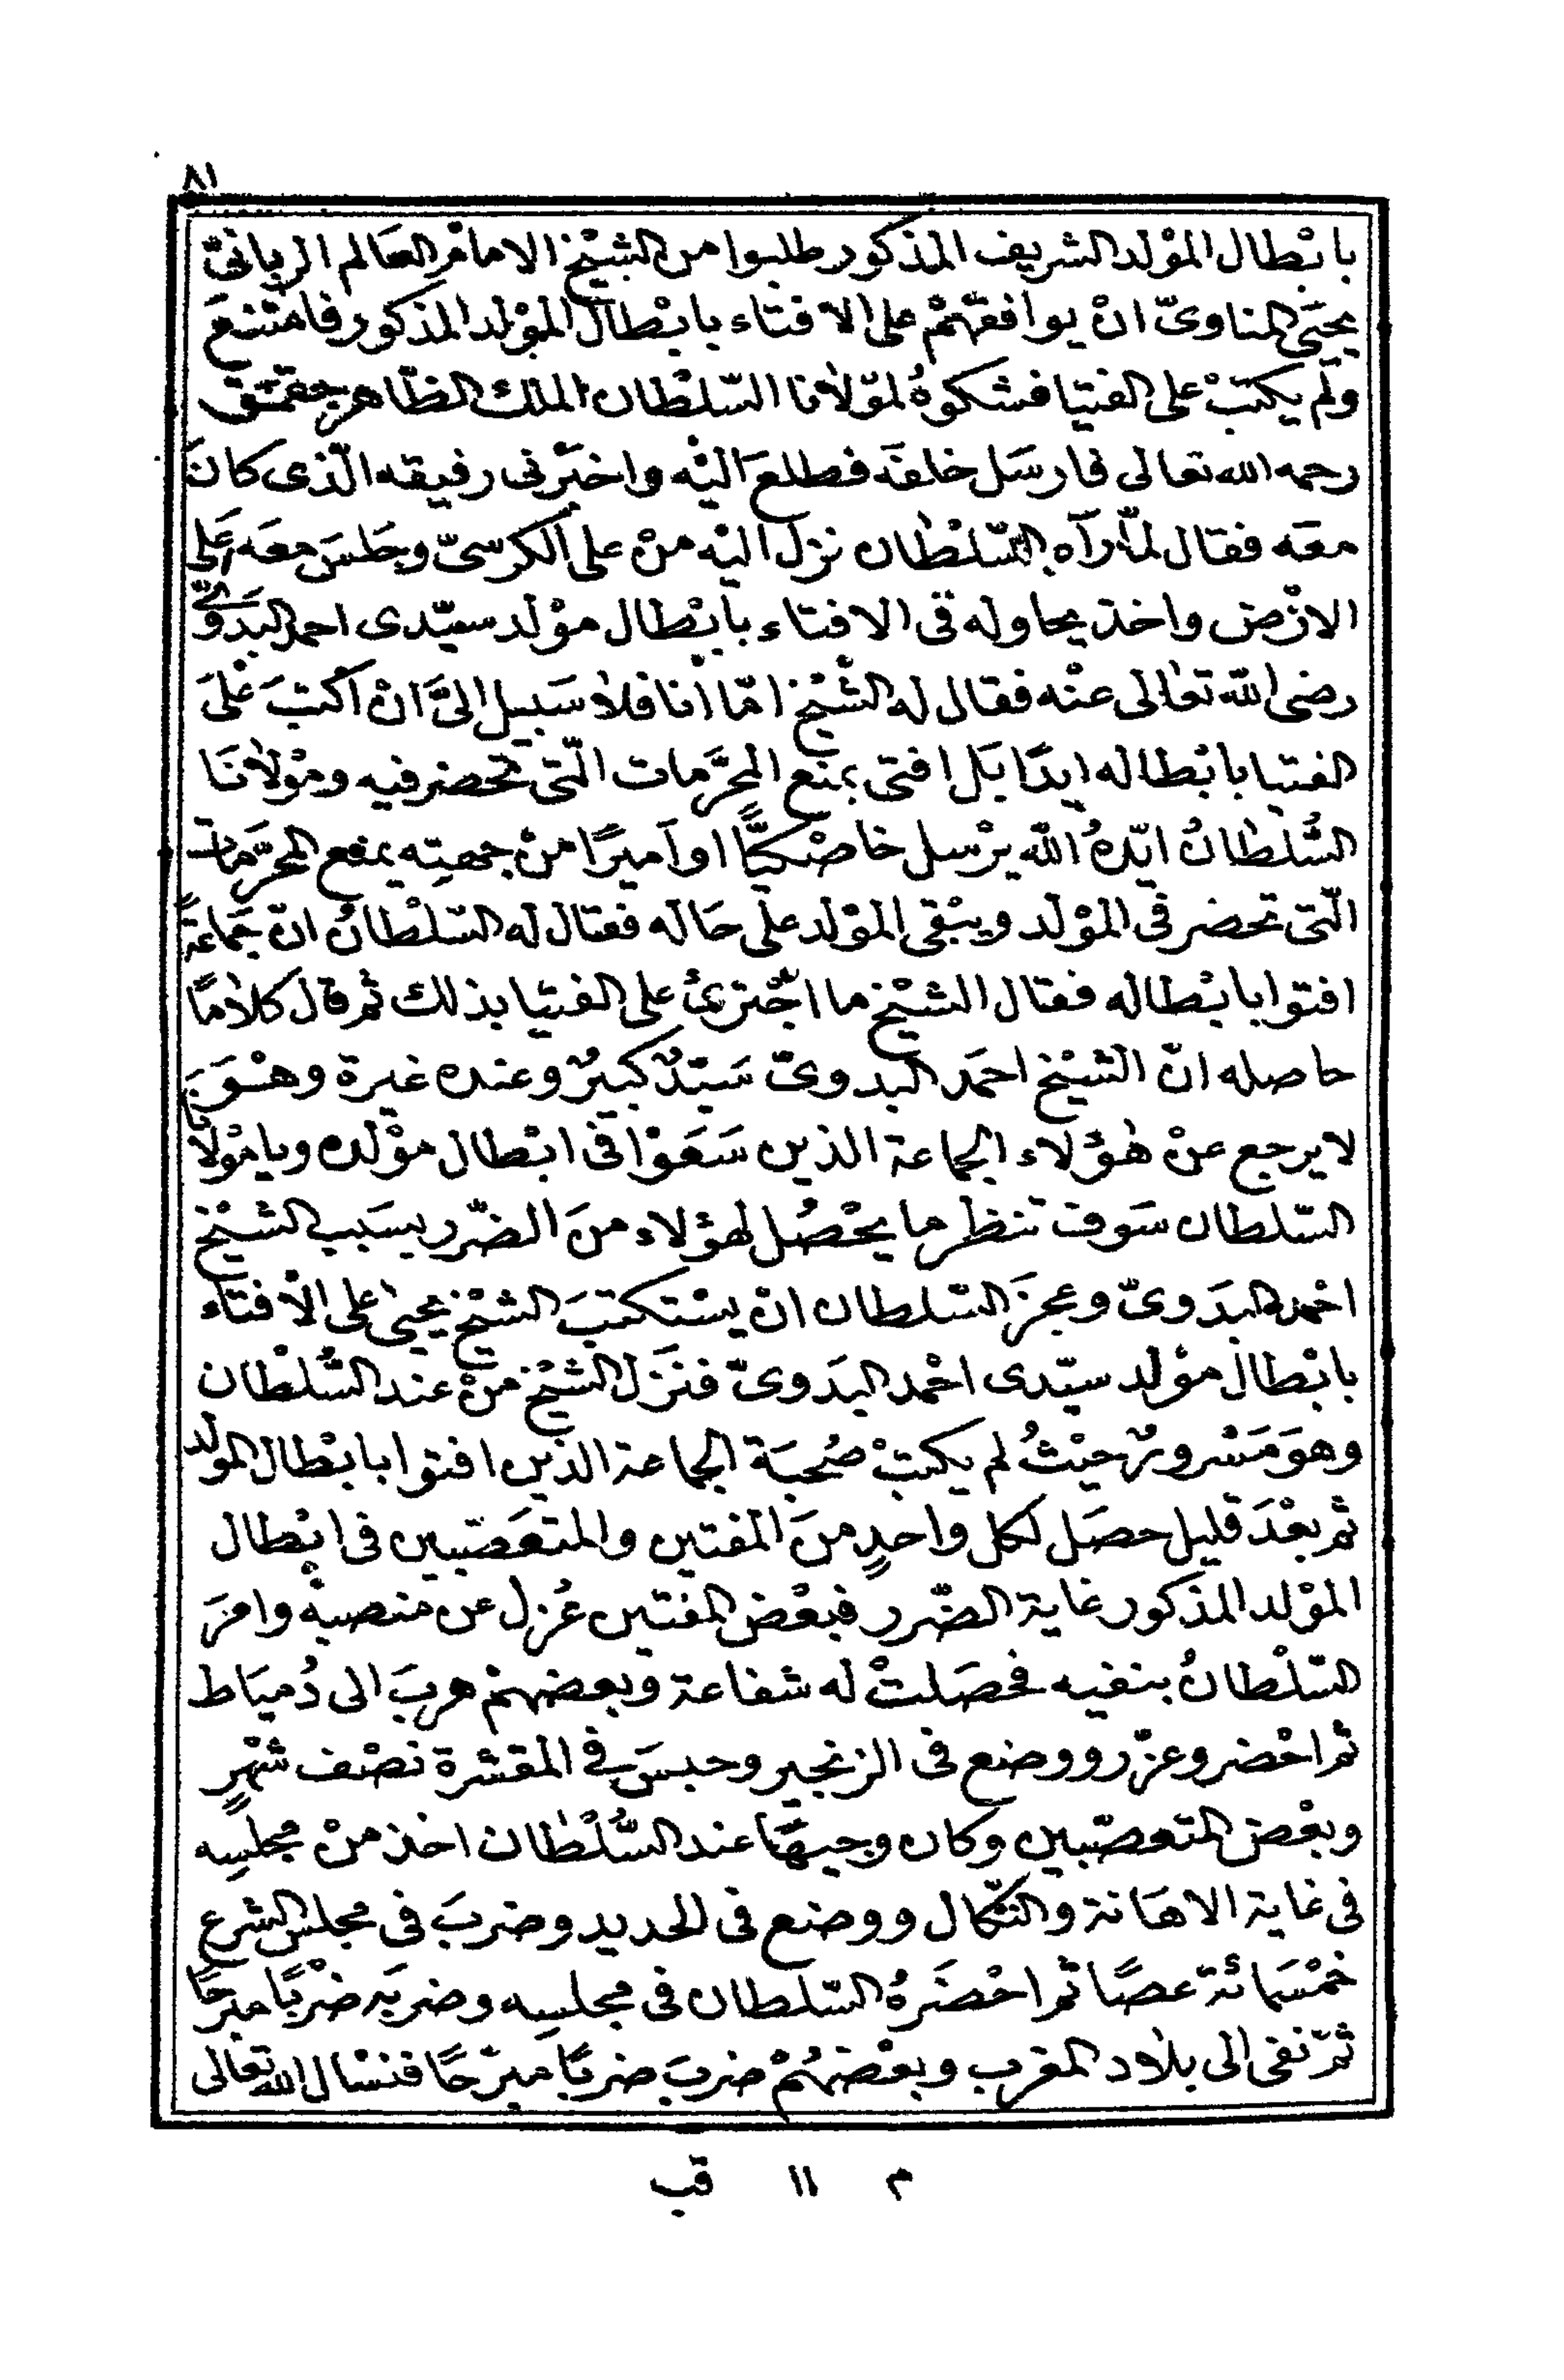 ٨١
بابْطال المَوْلد الشريف المذكور طلبوا من الشيْخ الامام العَالم الربانىّ
يحيَى المناوىّ انْ يوافقَهُمْ على الافتاء بابْطال المَوْلد المذكور فامْتنعَ
ولَم يكتبْ على الفتيا فشكوهُ لمَوْلانا السّلْطان الملك الظّاهر جقمق
رحمه الله تعالى فارسَل خلفَه فطلعَ اليْه واخبَرنى رفيقه الّذى كانَ
معَه فقال لمّا رآه السّلْطان نزل اليْه منْ على الكرسىّ وجَلسَ معَه عَلى
الارْض واخذ يحاوله فى الافتاء بابْطال مَوْلد سيّدى احمد البَدَوىّ
رضى الله تعالى عنْه فقال له الشّيْخ امّا انا فلا سَبيل الىَّ انْ اكتبَ عَلىَ
الفتيا بابْطاله ابدًا بَل افتى بمنْع المحرَّمات الّتى تحضر فيه ومَوْلانَا
السُّلطانُ ايّدهُ الله يرْسل خاصْكيًّا او آميرًا منْ جهتِه يمنع المحرَّمات
الّتى تحضر فى المَوْلد ويبْقى المَوْلد على حَاله فقال له السّلْطانُ انّ جَماعَةً
افتوا بابْطاله فقال الشيْخ ما اجْترئُ على الفتيا بذلك ثم قال كلامًا
حاصله انّ الشيْخ احمَد البدوىّ سَيّدٌ كبيرٌ وعنده غيرة وهْوَ
لا يرجع عنْ هٰؤلاء الجماعة الذين سَعَوْا فى ابْطال مَوْلده ويا مَوْلانا
السّلطان سَوف تنظر ما يحْصُل لهؤلاء منَ الضّرر بسَبب الشيْخ
احْمد البدَوىّ وعجزَ السّلطان ان يسْتكتبَ الشيْخ يحيىٰ على الافتاء
بابْطال مَوْلد سيّدى احْمد البدَوىّ فنَزل الشيْخ منْ عند السُّلْطان
وهوَ مَسْرورٌ حيْثُ لم يكتبْ صُحبَة الجماعة الذين افتوا بابْطال المولد
ثم بعْدَ قليل حصَل لكل واحدٍ منَ المفتين والمتعَصّبين فى ابْطال
المَوْلد المذكور غاية الضّرر فبعْض المفتين عُزل عن منصبه وامَرَ
السّلْطانُ بنفيه فحصَلتْ له شفاعة وبعضهمْ هربَ الى دُميَاط
ثم احْضر وعزّر ووضع فى الزنجير وحبسَ فى المقشرة نصْف شهْرٍ
وبعْض المتعصّبين وكان وجيهًا عند السُّلْطان اخذ منْ مجلسِه
فى غاية الاهَانة والنّكال ووضع فى الحديد وضربَ فى مجلس الشرع
خمْسَمائة عصًا ثم احْضَرهُ السّلطان فى مجلسِه وضربَه ضرْبًا مبرحًا
ثمّ نفى الى بلاد المغرب وبعْضهُمْ ضربَ ضربًا مبَرّحًا فنسْال الله تعالى
م ١١ قب